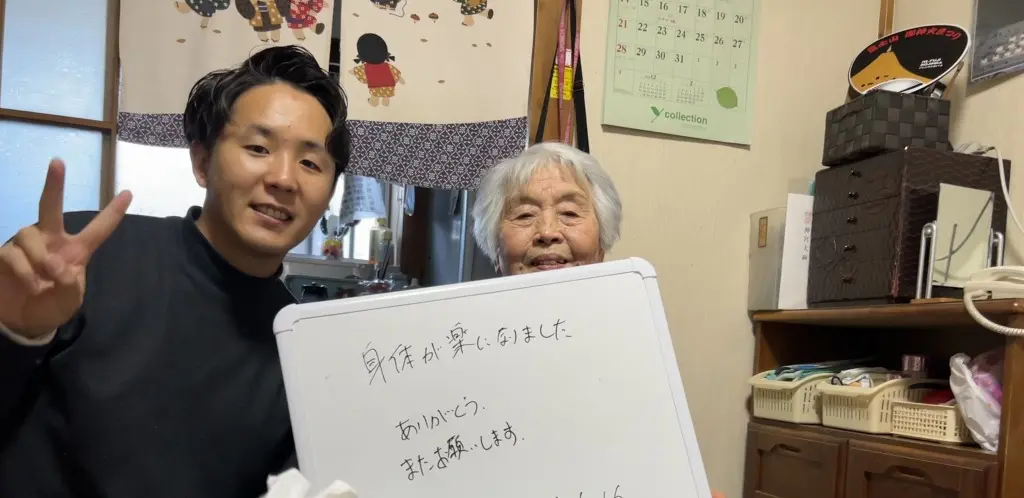 14 15 16 17 18 19 20
21 22 23 24 25 26 27
28 29 30 31
collection
身体が楽になりました
ありがとう.
またお願いします.